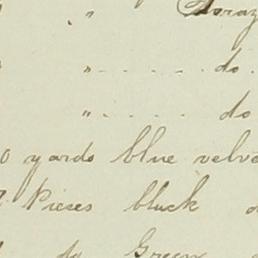 " "
" - - - - - do
" - . - . do
0 yards blue velv
Pieses bluck
do Green